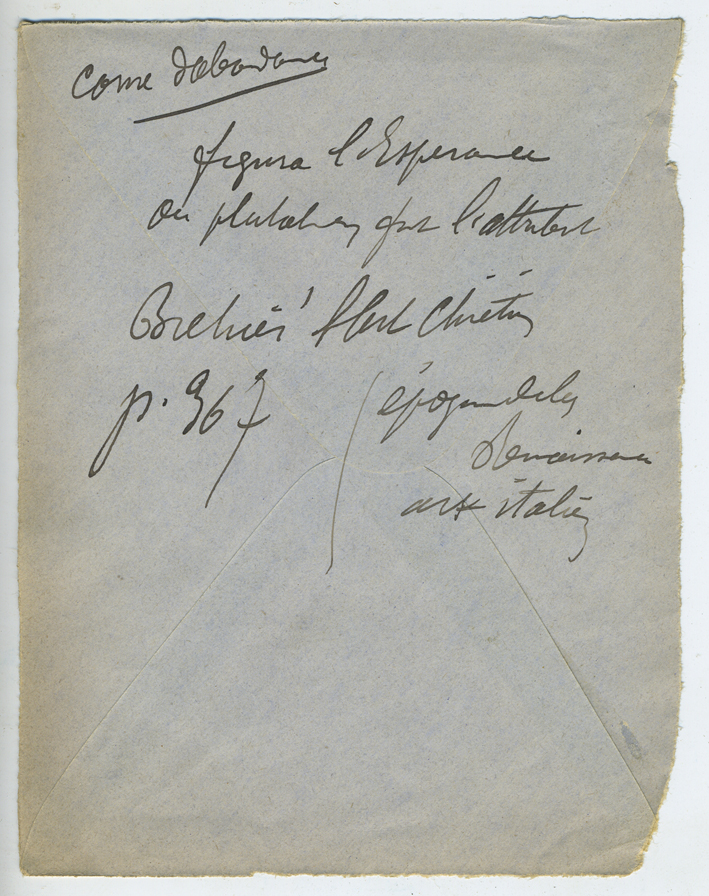 Corne d'abondance
figura l'Esperance
ou plutot en fut l'attribut
Brehier l'Art Chrétien
p. 367 époque de la
Renaissance
art italien